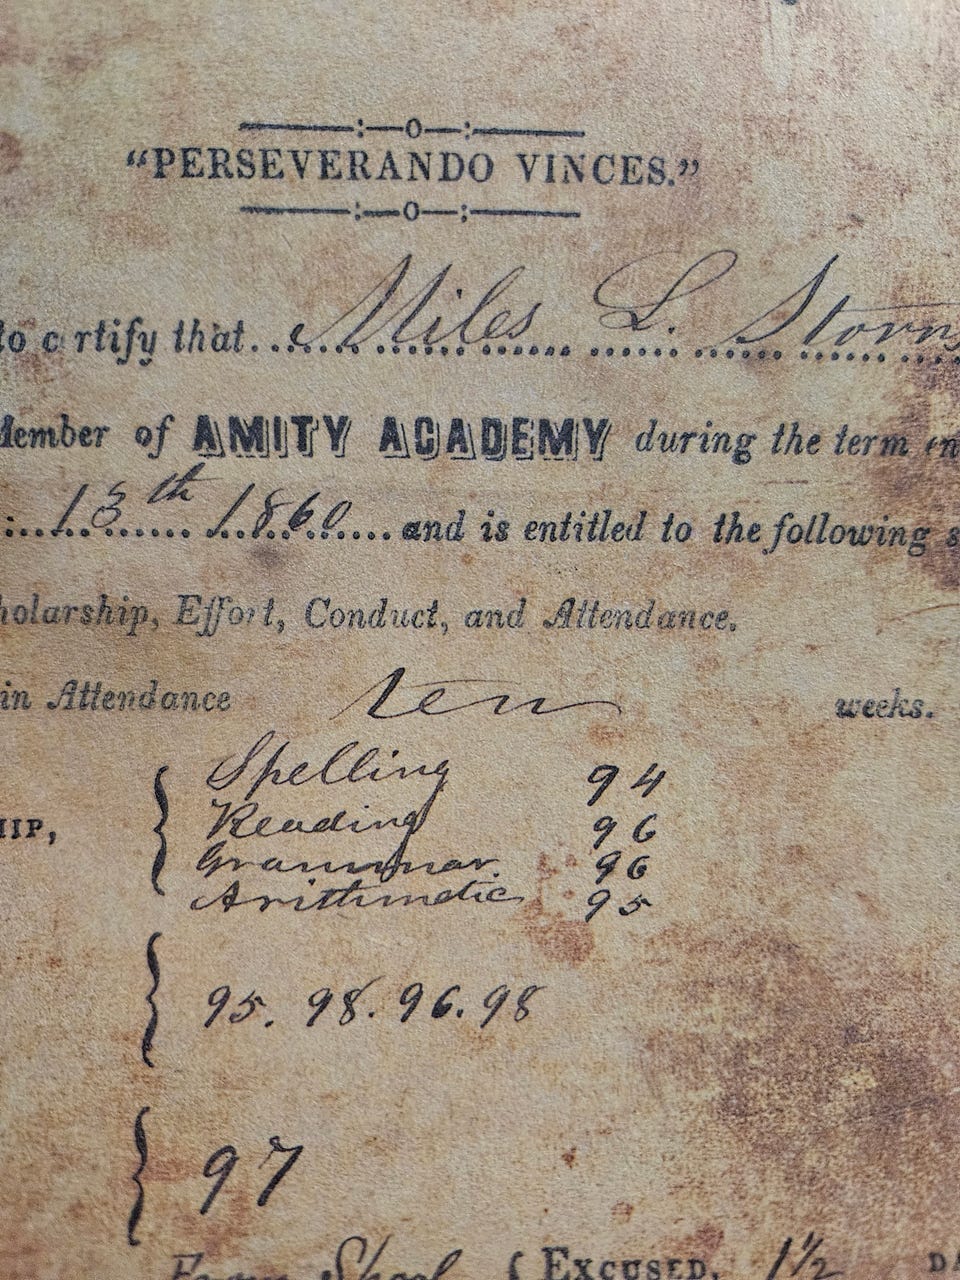 "PERSEVERANDO VINCES."
to certify that Miles L. Storrs
Member of AMITY ACADEMY during the term en
13th 1860 and is entitled to the following s
holarship, Effort, Conduct, and Attendance.
in Attendance ten weeks.
Spelling 94
Reading 96
HIP,
Grammar. 96
Arithmetic 95
95. 98. 96. 98
97
From Skool { EXCUSED, 1½ DA